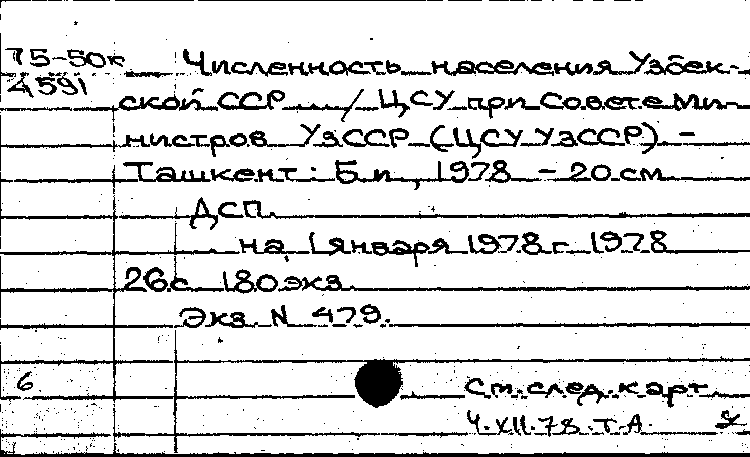 75-50к Численность населения Узбек-
4591 ской ССР .../ ЦСУ при Совете Ми-
нистров УзССР (ЦСУ УзССР). -
Ташкент: Б.и., 1978 - 20 см
ДСП.
на 1 января 1978 г. 1978
26 с. 180 экз.
Экз. N 479.
6 См. след. карт.
4.XII.78. Т.А.